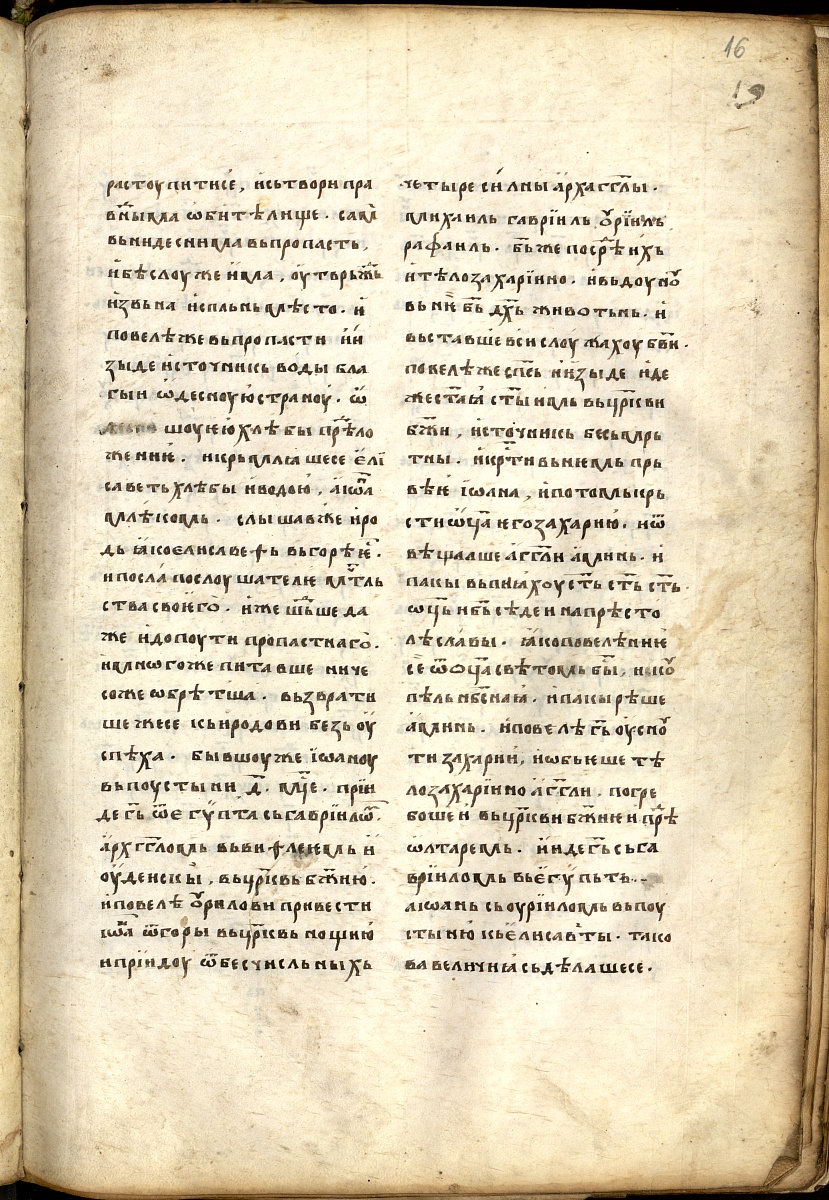 16
19
растоупитисе, и҆сьтвори пра
вⷣныима ѡбитѣлище · самⸯ
вьниде снима вьпропасть,
и҆бѣслоуже и҆ма, оу҆тврьжⷣь
и҆звьна и҆спльньмѣсто · и҆
повелѣже вьпропасти и҆и҆
зыде и҆сточникь воды бла
гыи ѡ҆деsноую страноу · ѿ
шоуюю хлѣбы прⷣѣло
жении҆ · и҆крьмлꙗшесе є҆лї
саветь хлѣбы и҆водою, а҆ѡⷩ҇а
млѣкомь · слышавже и҆ро
дь ꙗ҆коєлисавеѳь вьгорѣ ѥⷭ҇ ·
и҆посла послоушателѥ мⷱ҇тль
ства своѥго · и҆же шⷣьше да
же и҆допоути пропастнаго ·
и҆много же питавше ниче
соже ѡбрѣтша · вьзврати
ше жесе кьи҆родови безьоу҆
спѣха · бывшоуже і҆ѡаноу
вьпоустыни д҃ · мⷭ҇це · прїи
де гь҃ ѿєгѵпта сьгаврїилѡⷨ,
а҆рхгг҃ломь вьвиѳлеѥмь и҆
оу҆деискы, вьцрⷦ҇вь бж҃ию ·
и҆повелѣ оу҆рилови привести
і҆ѡⷩ҇а ѿгоры вьцрⷦ҇вь нощию
и҆прїидоу ѿбесчисльныхь
четыре си҆лны а҆рхаггⷧ҇ы ·
михаиль гаврїиль оу҆рїиль
рафаиль · бⷭ҇ь же посрⷣѣ ихь
и҆тѣло захарїино · и҆вьдоуноу
вьнѥ бь҃ дх҃ь животьнь · и҆
вьставше вси слоужахоу бв҃и ·
повелѣ же сп҃сь и҆изыде и҆де
жестаꙗ ст҃ыимь вьцрⷦ҇ви
бж҃и, и҆сточникь бесьмрь
тны · и҆крⷭ҇ти вьнѥмь прь
вѣѥ і҆ѡана, и҆потомькрь
сти ѡц҃а ѥго захарию · и҆ѿ
вѣщаше а҆гг҃ли а҆минь · и҆
пакы вьпиꙗхоу ст҃ь ст҃ь ст҃ь
ѡц҃ь и҆бь҃ сѣдеи напрѣсто
лѣ славы · ꙗ҆ко повелѣниѥ
се ѿѡц҃а свѣтомь бы҃, и҆коу
пѣль нбⷭ҇наꙗ · и҆пакы рѣше
а҆минь · и҆повелѣ гь҃ оу҆сноу
ти захарии, и҆ѡбьѥше тѣ
ло захарїино а҆гг҃ли · погре
боше и҆ вьцрⷦ҇ви бж҃иѥи прⷣѣ
ѡ҆лтаремь · и҆иде гь҃ сьга
врїиломь вьє҆гѵпьть
а҆їѡань сьоурїиломь вьпоу
стыню кье҆лисавⷴты · тако
ва величиꙗ сьдѣлашесе ·